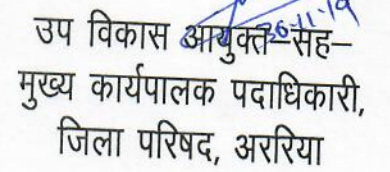 26-11-19
उप विकास आयुक्त–सह–
मुख्य कार्यपालक पदाधिकारी,
जिला परिषद, अररिया